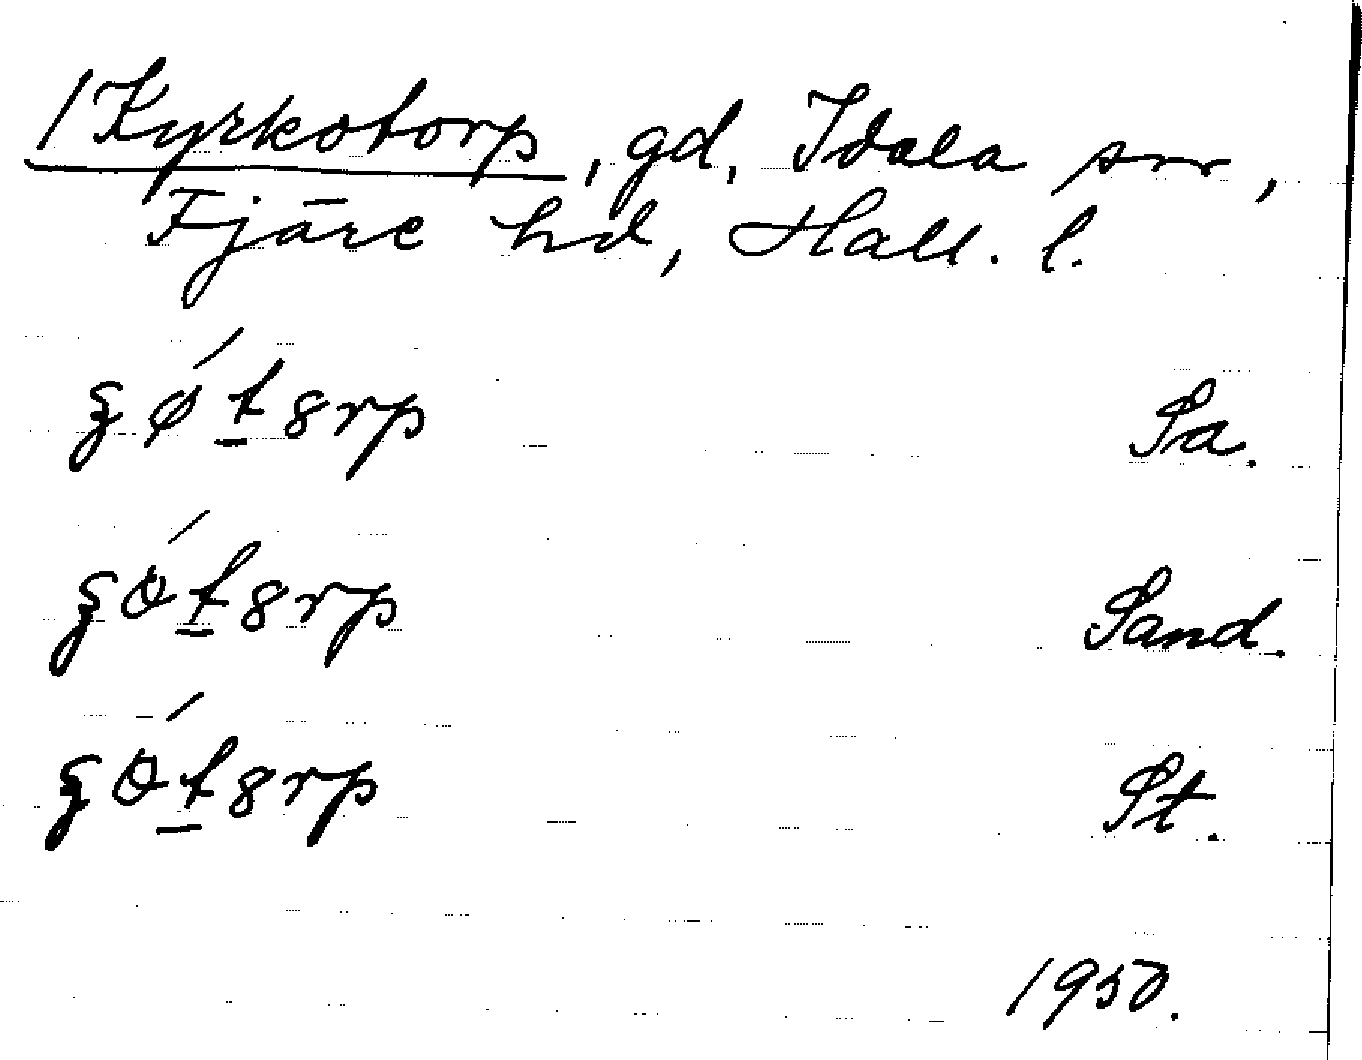 /Kyrkotorp, gd, Idala sn,
Fjäre hd, Hall. l.
ʒǿt8rp Sa.
ʒót8rp Sand.
ʒót8rp St.
1950.